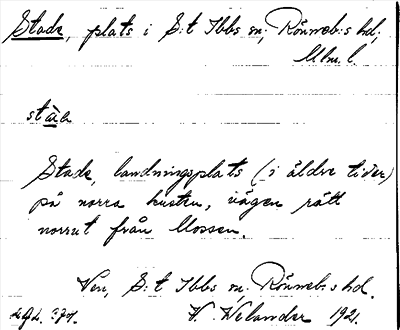 Stade, plats i S:t Ibbs sn; Rönneb:s hd;
Mlm. l.
Stade, landningsplats (i äldre tider)
på norra kusten, vägen rätt
norrut från Mossen.
Ven, S:t Ibbs sn. Rönneb:s hd.
W. Welander 192.